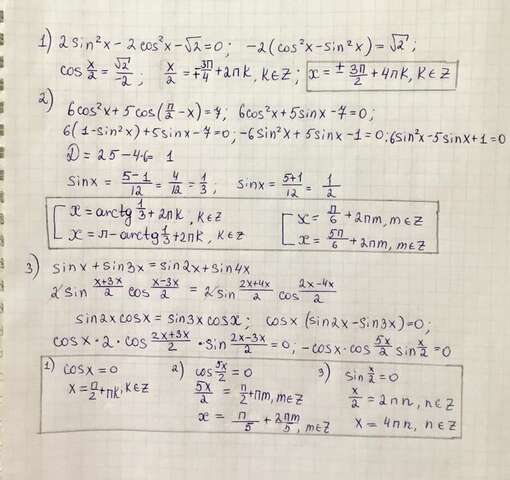 1) 2 sin²x - 2 cos²x - √2 = 0; -2(cos²x - sin²x) = √2;
cos x/2 = √2/-2; x/2 = ∓ 3π/4 + 2πk, k∈Z; x = ± 3π/2 + 4πk, k∈Z
2)
6cos²x + 5cos(π/2 - x) = 7; 6cos²x + 5sinx - 7 = 0;
6(1 - sin²x) + 5sinx - 7 = 0; -6sin²x + 5sinx - 1 = 0; 6sin²x - 5sinx + 1 = 0
D = 25 - 4·6 = 1
sinx = 5-1/12 = 4/12 = 1/3; sinx = 5+1/12 = 1/2
[ x = arctg 1/3 + 2πk, k∈Z [ x = π/6 + 2πm, m∈Z
x = π - arctg 1/3 + 2πk, k∈Z x = 5π/6 + 2πm, m∈Z
3) sinx + sin3x = sin2x + sin4x
2 sin x+3x/2 cos x-3x/2 = 2 sin 2x+4x/2 cos 2x-4x/2
sin2x cosx = sin3x cosx; cosx (sin2x - sin3x) = 0;
cosx · 2 · cos 2x+3x/2 · sin 2x-3x/2 = 0; -cosx · cos 5x/2 sin x/2 = 0
1) cosx = 0 2) cos 5x/2 = 0 3) sin x/2 = 0
x = π/2 + πk, k∈Z 5x/2 = π/2 + πm, m∈Z x/2 = 2πn, n∈Z
x = π/5 + 2πm/5, m∈Z x = 4πn, n∈Z